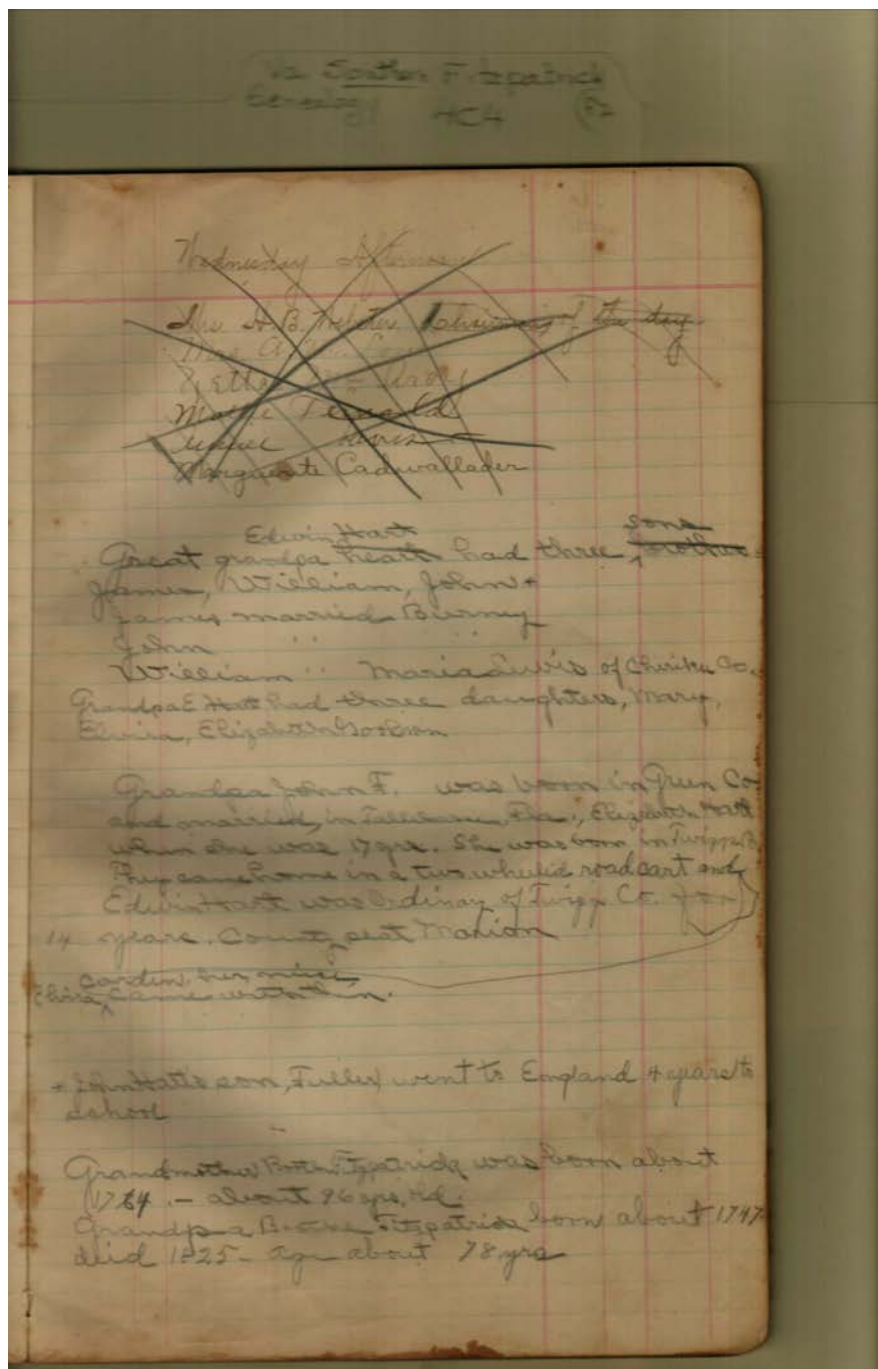 Fitzpatrick
Genealogy HC4
Wednesday Afternoon
Mrs A. B. Webster of the day
Marguerite Cadwallader
Edwin Hart sons
Great grandpa heart had three brothers
James, William, John +
James married Burney
John " "
William " Maria Lewis of Co.
Grandpa E Hart had three daughters, Mary,
Elvira, Elizabeth
Grandpa John F. was born in Green Co
and married, in Fla., Elizabeth Hart
when she was 17 yrs. She was born in Twiggs Co
They came home in a two wheeled road cart and
Edwin Hart was Ordinary of Twigg Co. for
14 years. County seat Marion
carden, her niece,
Elvira came with them.
+ John Hart's son, Fuller, went to England 4 years to
school
Grandmother Fitzpatrick was born about
1764 . - about 96 yrs. old.
Grandpa Fitzpatrick born about 1747
died 1825 - age about 78 yrs